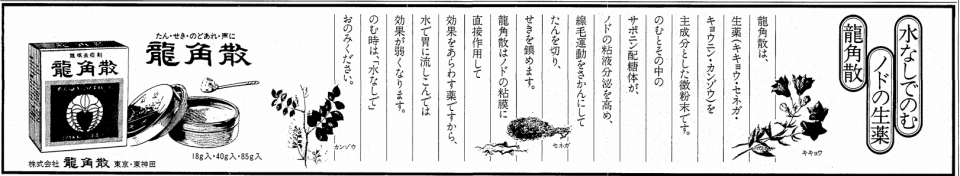 水なしでのむ
ノドの生薬
龍角散
龍角散は、
生薬(キキョウ・セネガ・
キョウニン・カンゾウ)を
主成分とした微粉末です。
のむとその中の
サポニン配糖体が、
ノドの粘液分泌を高め、
線毛運動をさかんにして
たんを切り、
せきを鎮めます。
龍角散はノドの粘膜に
直接作用して
効果をあらわす薬ですから、
水で胃に流しこんでは
効果が弱くなります。
のむ時は、「水なしで」
おのみください。
キキョウ
セネガ
カンゾウ
たん・せき・のどあれ・声に
龍角散
龍角散
18g入・40g入・85g入
株式会社 龍角散 東京・東神田